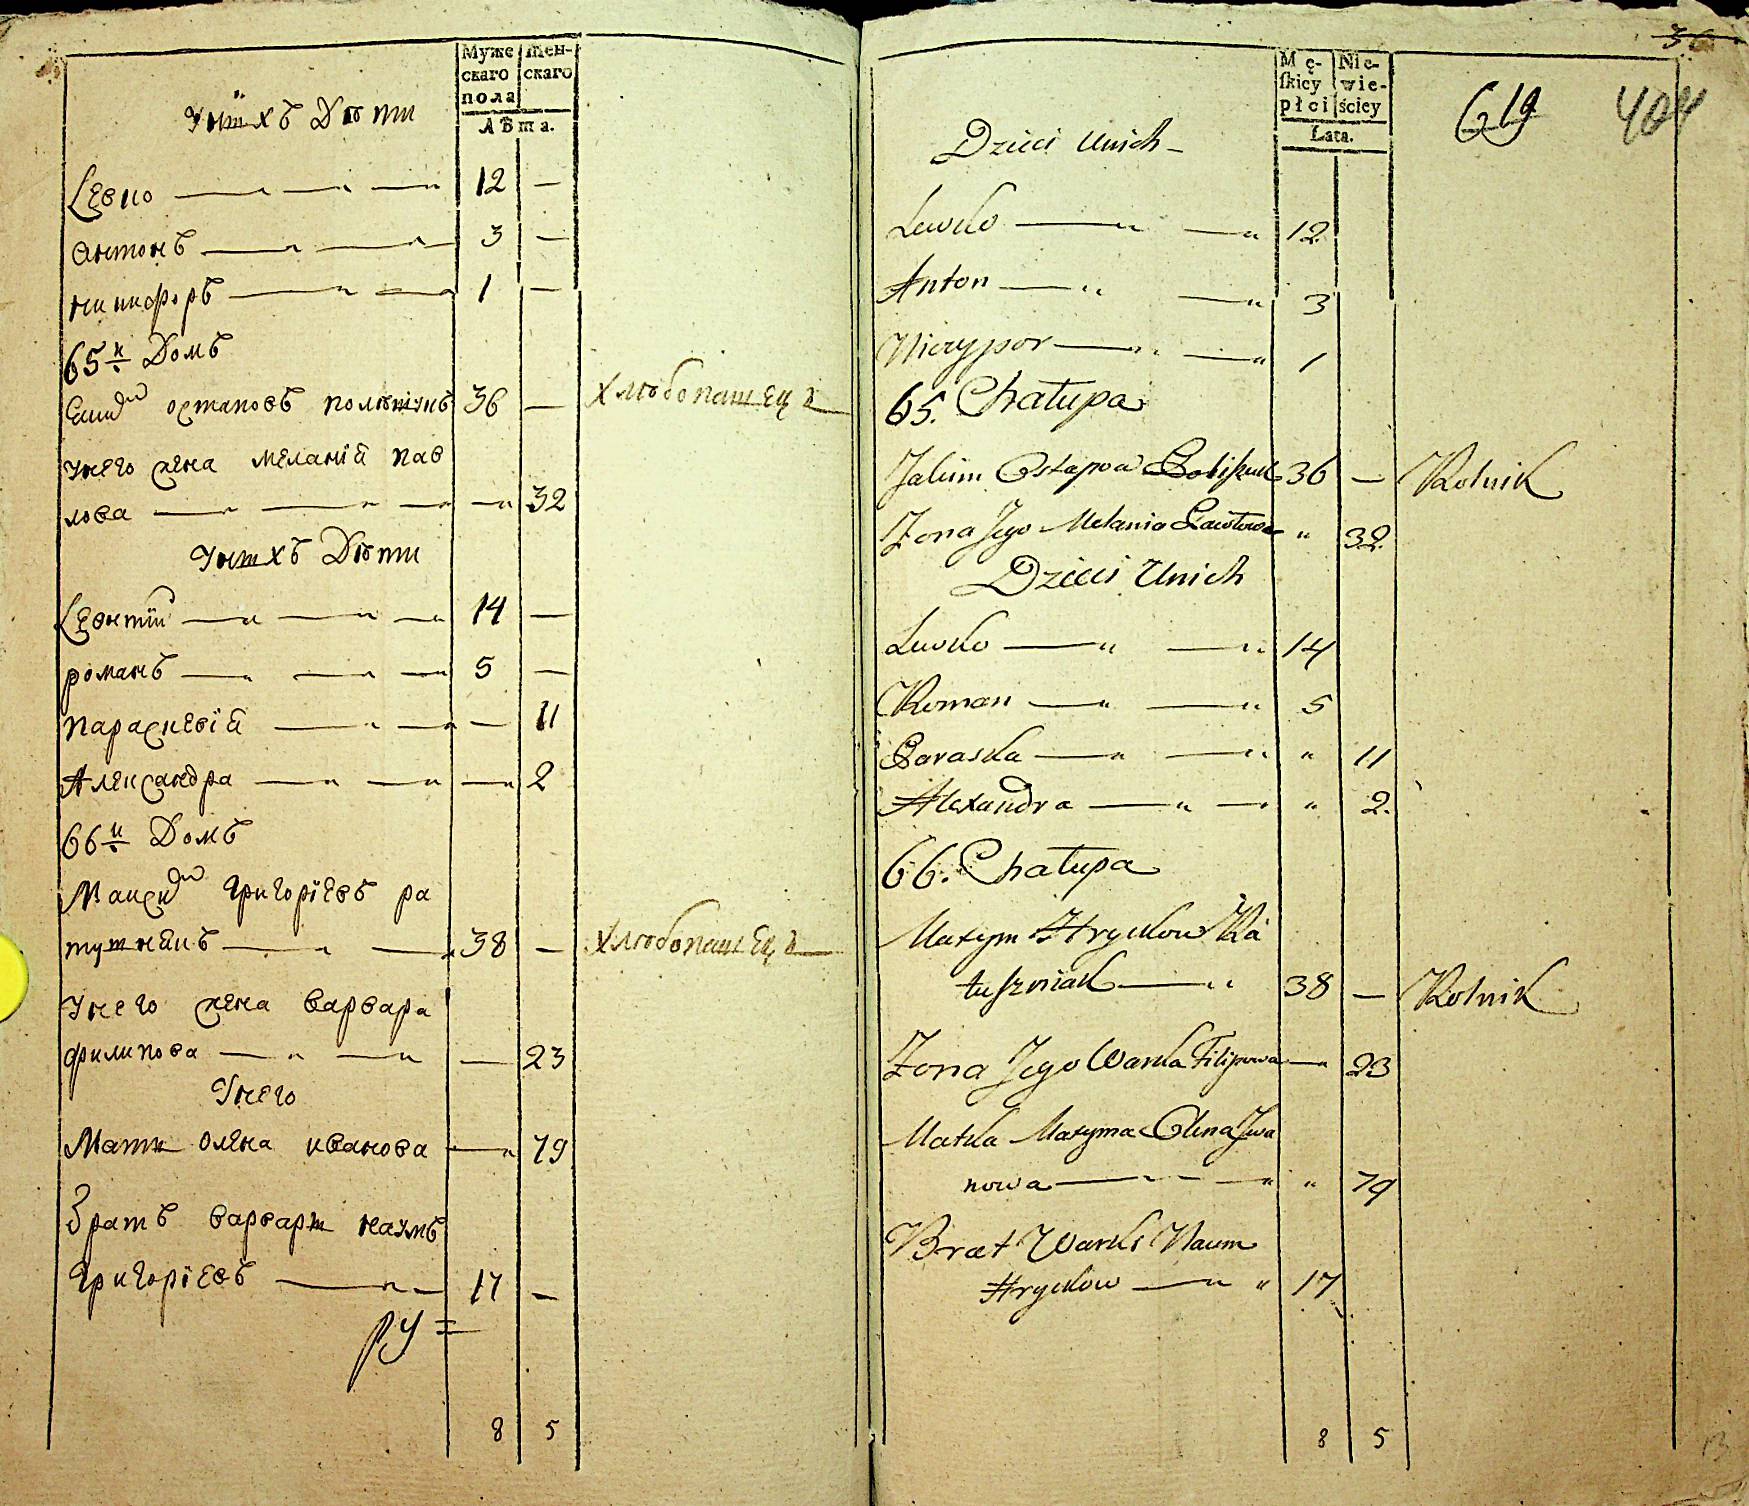 Муже
скаго
пола
Жен-
скаго
Лѣта.
Унихъ Дѣти
Левко 12 —
Антонъ 3 —
Никифоръ 1 —
65й Домъ
остаповъ 36 — хлѣбопашецъ
Унего жена меланія пав
лова — 32
Унихъ Дѣти
Леонтій 14 —
романъ 5 —
параскевія — 11
Александра — 2
66й Домъ
Максим григоріевъ ра
тушнякъ 38 — хлѣбопашецъ
Унего жена варвара
филипова — 23
Унего
Мати олена иванова — 79
Братъ варвари наумъ
григоріевъ 17 —
8 5
Mę-
skiey
płci
Nie-
wie-
ściey
Lata.
36
619 404
Dzieci Unich
Lewko 12
Anton 3
Niczypor 1
65. Chałupa
Jakim Ostapow 36 — Rolnik
Zona Jego Melania Pawłowa " 32
Dzieci Unich
Lewko 14
Roman 5
Paraska " 11
Alexandra " 2.
66. Chałupa
Maxym Hryckow Ra
tuszniak 38 — Rolnik
Zona Jego Warka Filipowa — 23
Matka Maxyma Olena Iwa
nowa " 79
Brat Warki Naum
Hryckow 17
8 5
13